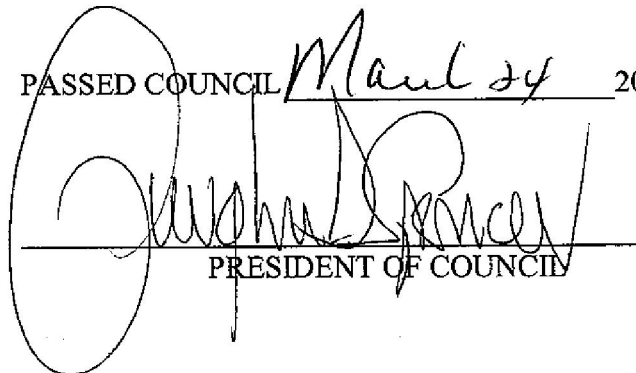 PASSED COUNCIL March 24 20
PRESIDENT OF COUNCIL